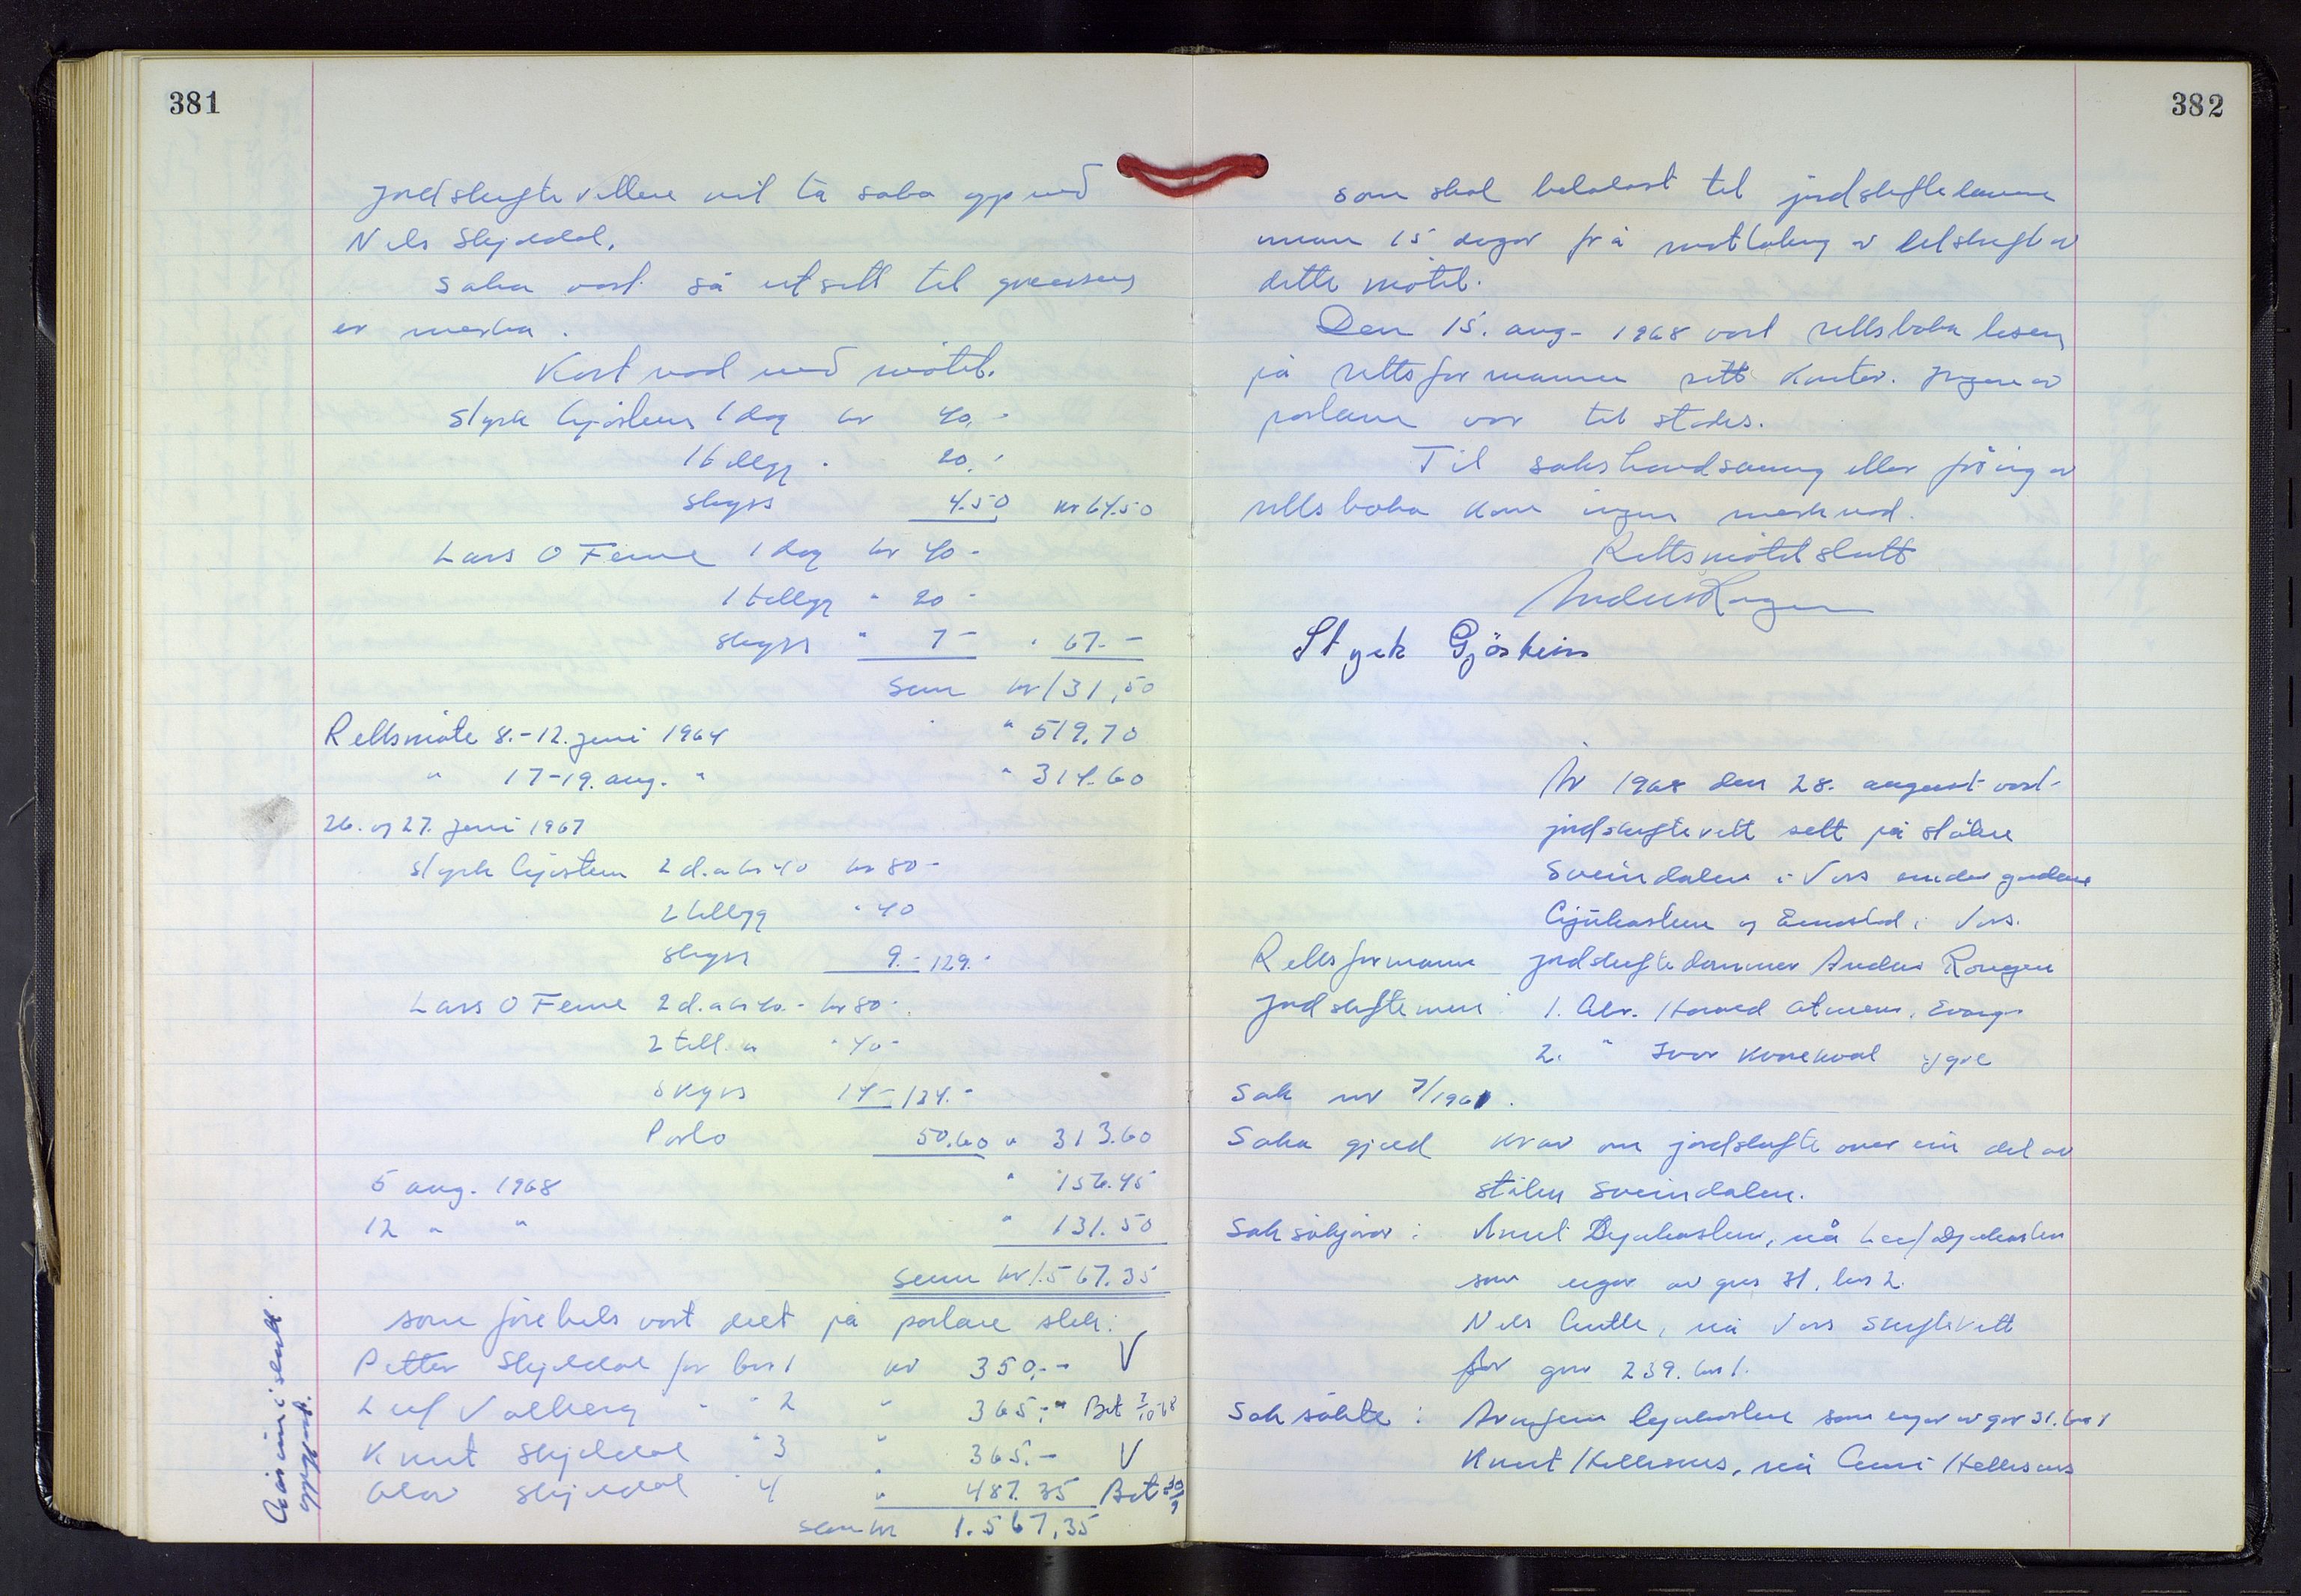 381
Jordskifteretten vil ta saka opp med
Nils Skjeldal.
Saka vart så utsett til grensene
er merka.
Kostnad med møtet.
Styrk Gjøstein 1 dag kr 40,-
1 tillegg " 20,-
skyss 4.50 kr 64.50
Lars O Ferne 1 dag kr 40 -
1 tillegg " 20 -
skyss " 7 - " 67.-
Sum kr 131,50
Rettsmøte 8.-12. juni 1964 " 519.70
" 17-19. aug. " " 314.60
26. og 27. juni 1967
Styrk Gjøstein 2 d. a kr 40 kr 80 -
2 tillegg " 40
skyss 9.- 129.-
Lars O Ferne 2 d. a kr 40.- kr 80 -
2 till. a " 40 -
Skyss 14 - 134.-
Porto 50.60 " 313.60
5 aug. 1968 " 156.45
12 " " " 131.50
Sum kr 1.567.35
som førebels vart delt på partane slik:
Petter Skjeldal for bnr 1 kr 350,- V
Leif Valberg " " 2 " 365,- Bet 7/10-68
Knut Skjeldal " 3 " 365.- V
Olav Skjeldal " 4 " 487.35 Bet 30/9
Sum kr 1.567,35
382
som skal betalast til jordskiftedommaren
innan 15 dagar frå mottaking av utskrift av
dette møtet.
Den 15. aug. 1968 vart rettsboka lesen
på rettsformannen sitt kontor. Ingen av
partane var til stades.
Til sakshandsaming eller føring av
rettsboka kom ingen merknad.
Rettsmøtet slutt
Anders Rongen
Styrk Gjøstein
År 1968 den 28. august vart
jordskifterett sett på stølen
Sveindalen i Voss under gardene
Gjukastein og Emstad i Voss.
Rettsformann jordskiftedommer Anders Rongen
Jordskiftemenn 1. Olv. Harald Evanger
2. " Ivar Kvarekval Ygre
Sak nr 7/1961.
Saka gjeld krav om jordskifte over ein del av
stølen Sveindalen.
Saksøkjarar : Knut Gjukastein, nå Leif Gjukastein
som eigar av gnr 31, bnr 2.
Nils Gulle, nå Voss Skifterett
for gnr 239. bnr 1.
Saksøkte : Gjukastein som eigar av gnr 31. bnr 1
Knut Hellesnes, nå Hellesnes